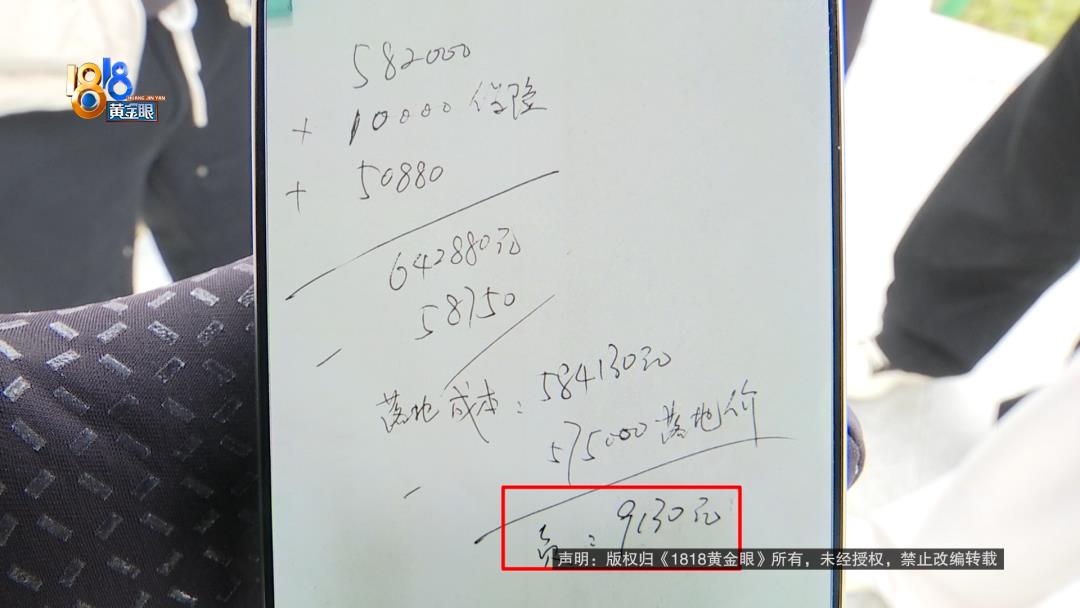 1818
HUANG JIN YAN
黄金眼
582000
+ 10000 保险
+ 50880
642880元
- 58750
落地成本：584130元
- 575000落地价
亏：9130元
声明：版权归《1818黄金眼》所有，未经授权，禁止改编转载